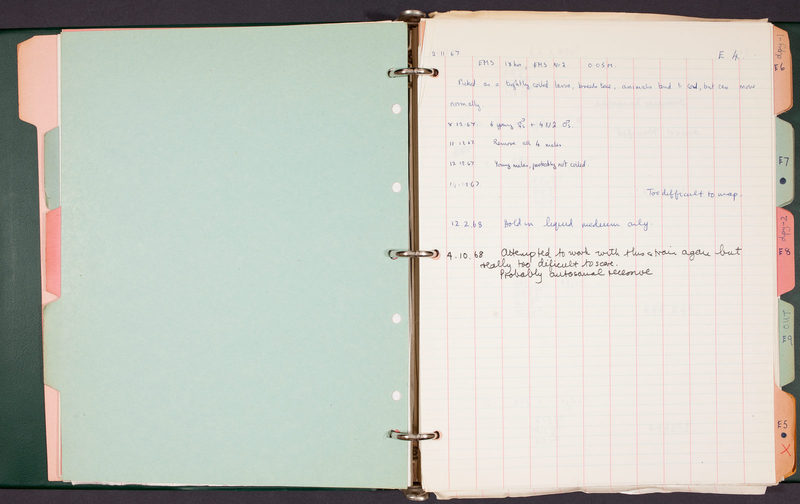 2.11.67 E 4
EMS 18 hrs, EMS No 2 0.05M.
Picked as a tightly coiled larva, breeds true, animals tend to coil, but can move
normally
8.12.67 6 young ☿s + 4 N2 ♂s
11.12.67 Remove all 4 males
12.12.67 Young males, probably not coiled
14.12.67
Too difficult to map.
12.2.68 Hold in liquid medium only.
4.10.68 Attempted to work with this strain again but
really too dificult to score.
Probably autosomal recessive
dpy-1
E6
E7
dpy-2
E8
OUT
E9
E5
X